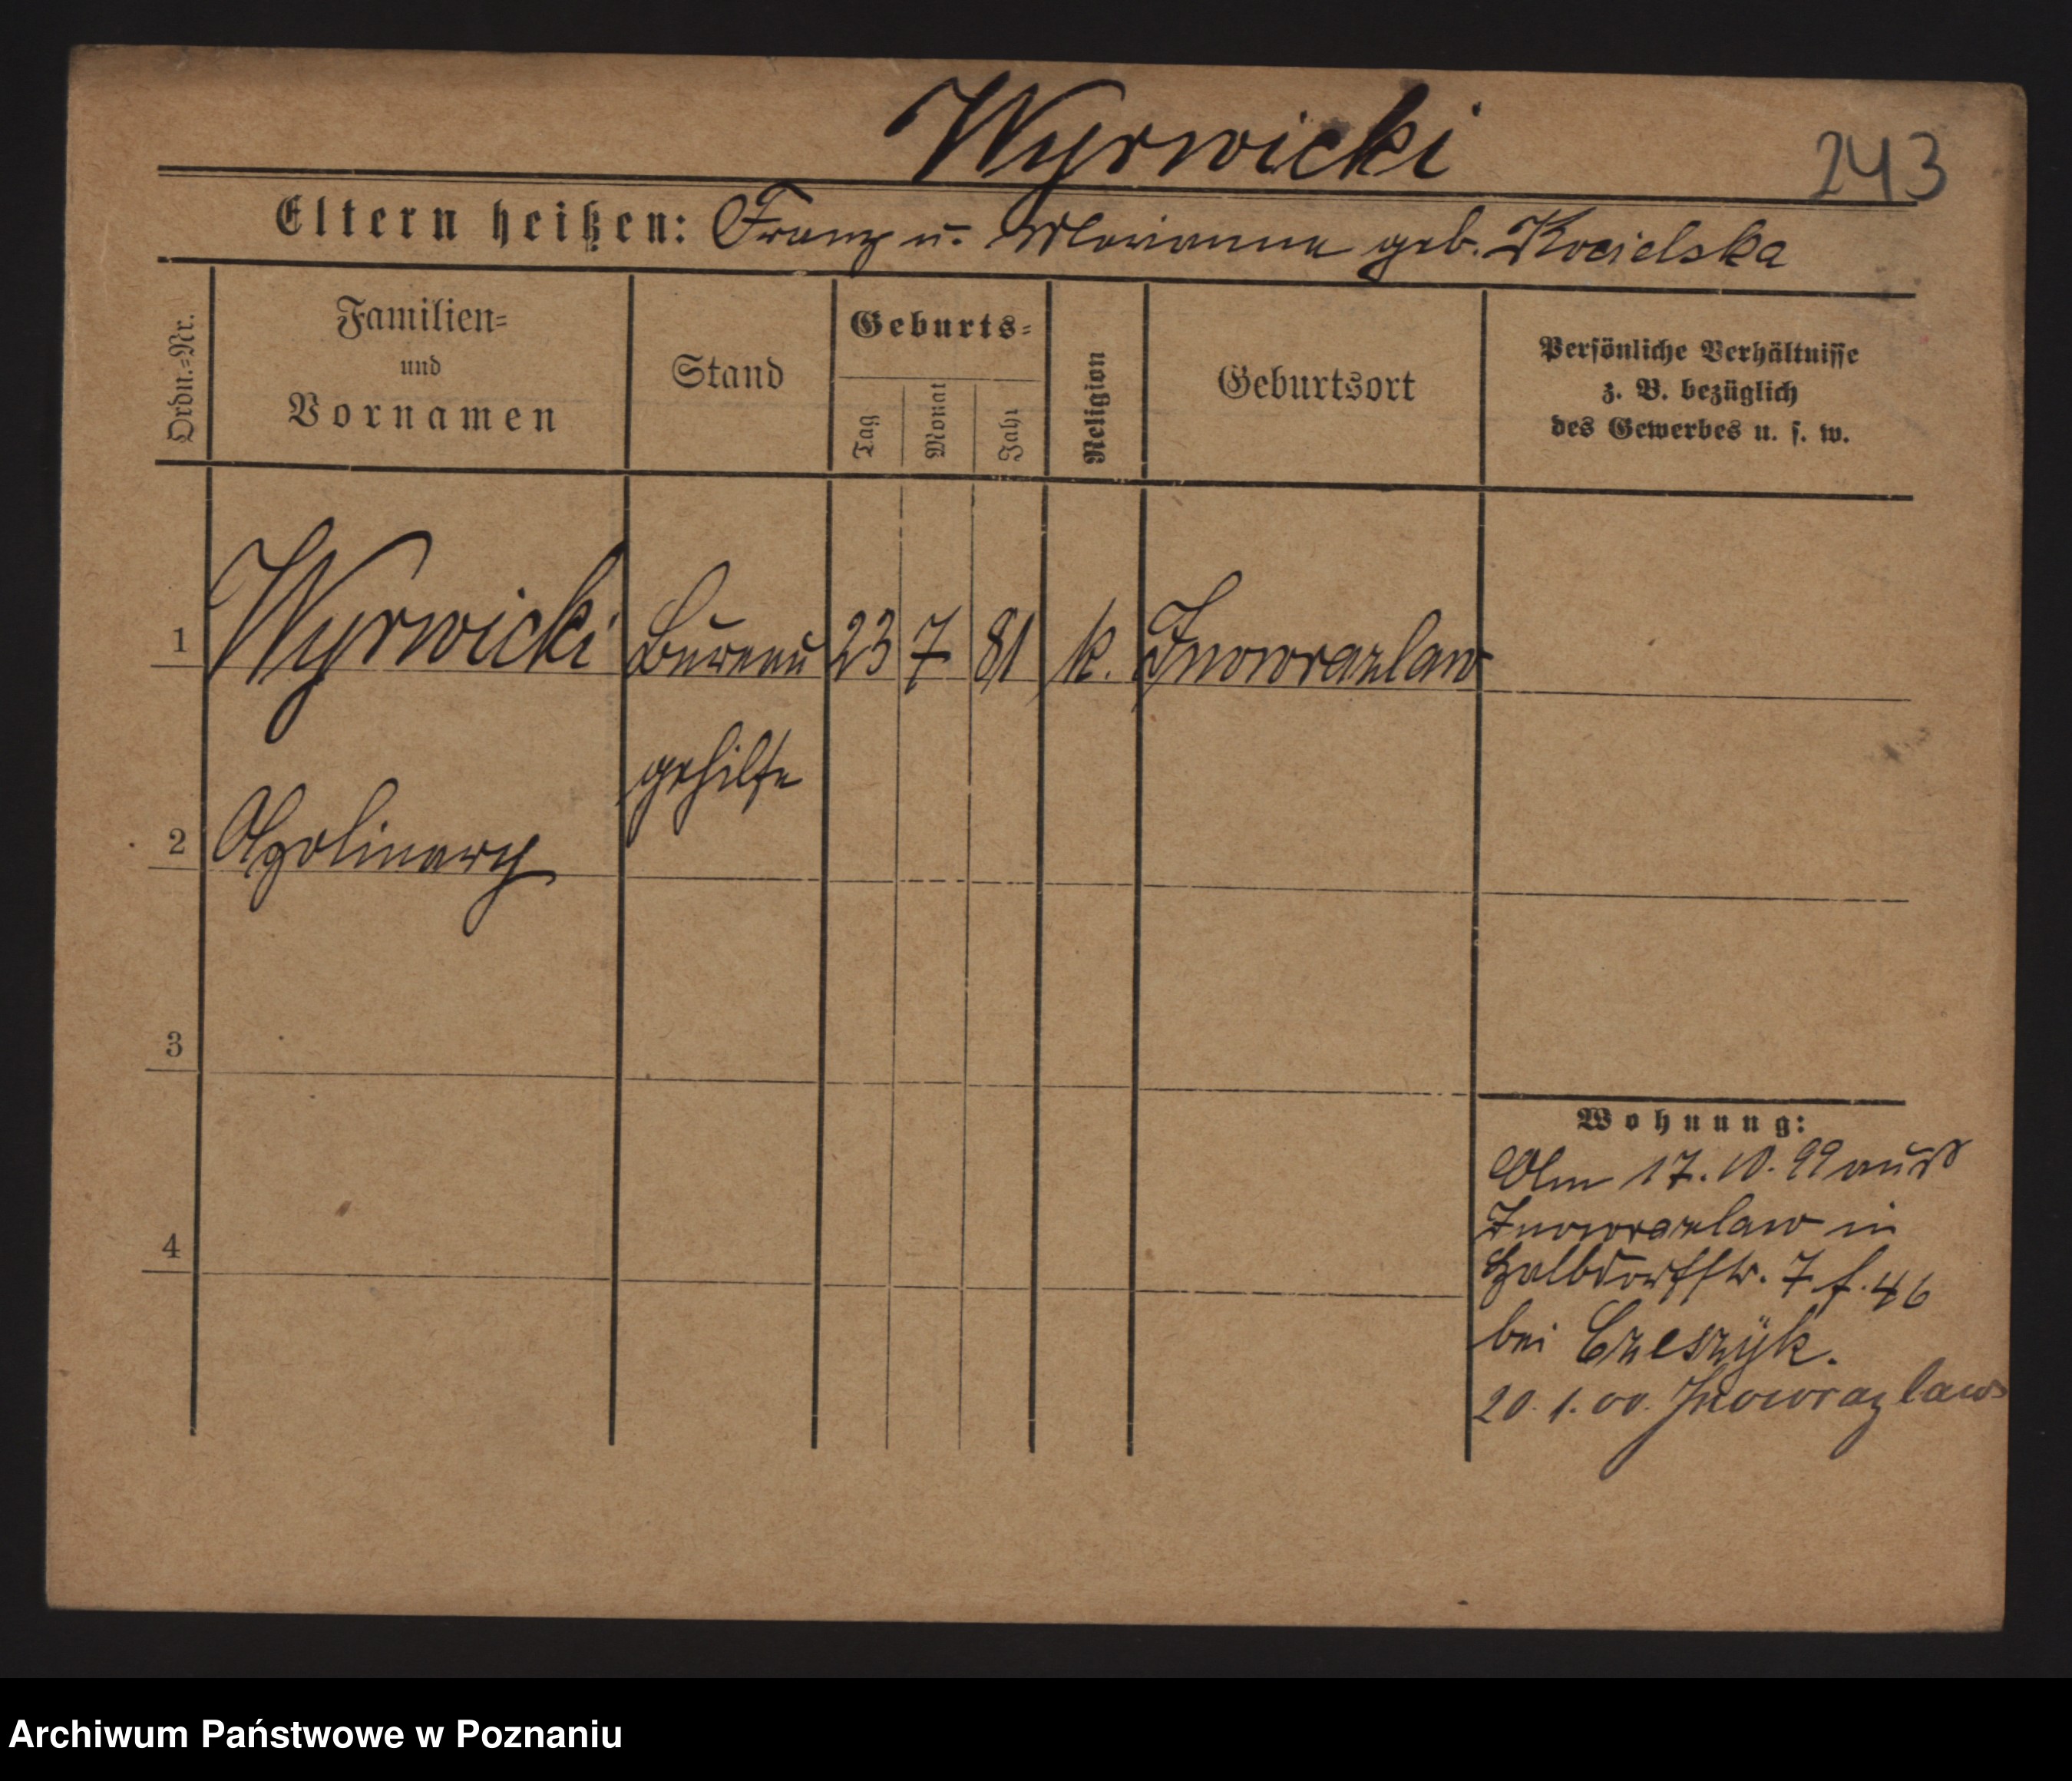 Wyrwicki
243
Eltern heißen: Franz u. Marianna geb. Kocielska
Ordn.=Nr.
Familien=
und
Vornamen
Stand
Geburts=
Tag
Monat
Jahr
Religion
Geburtsort
Persönliche Verhältnisse
z. B. bezüglich
des Gewerbes u. s. w.
1 Wyrwicki Bureau 23 7 81 k. Inowrazlaw
gehilfe
2 Apolinary
3
4
Wohnung:
Am 17.10.99 aus
Inowrazlaw in
Halbdorfstr. 7 f. 46
bei Czeszyk.
20.1.00. Inowrazlaw
Archiwum Państwowe w Poznaniu